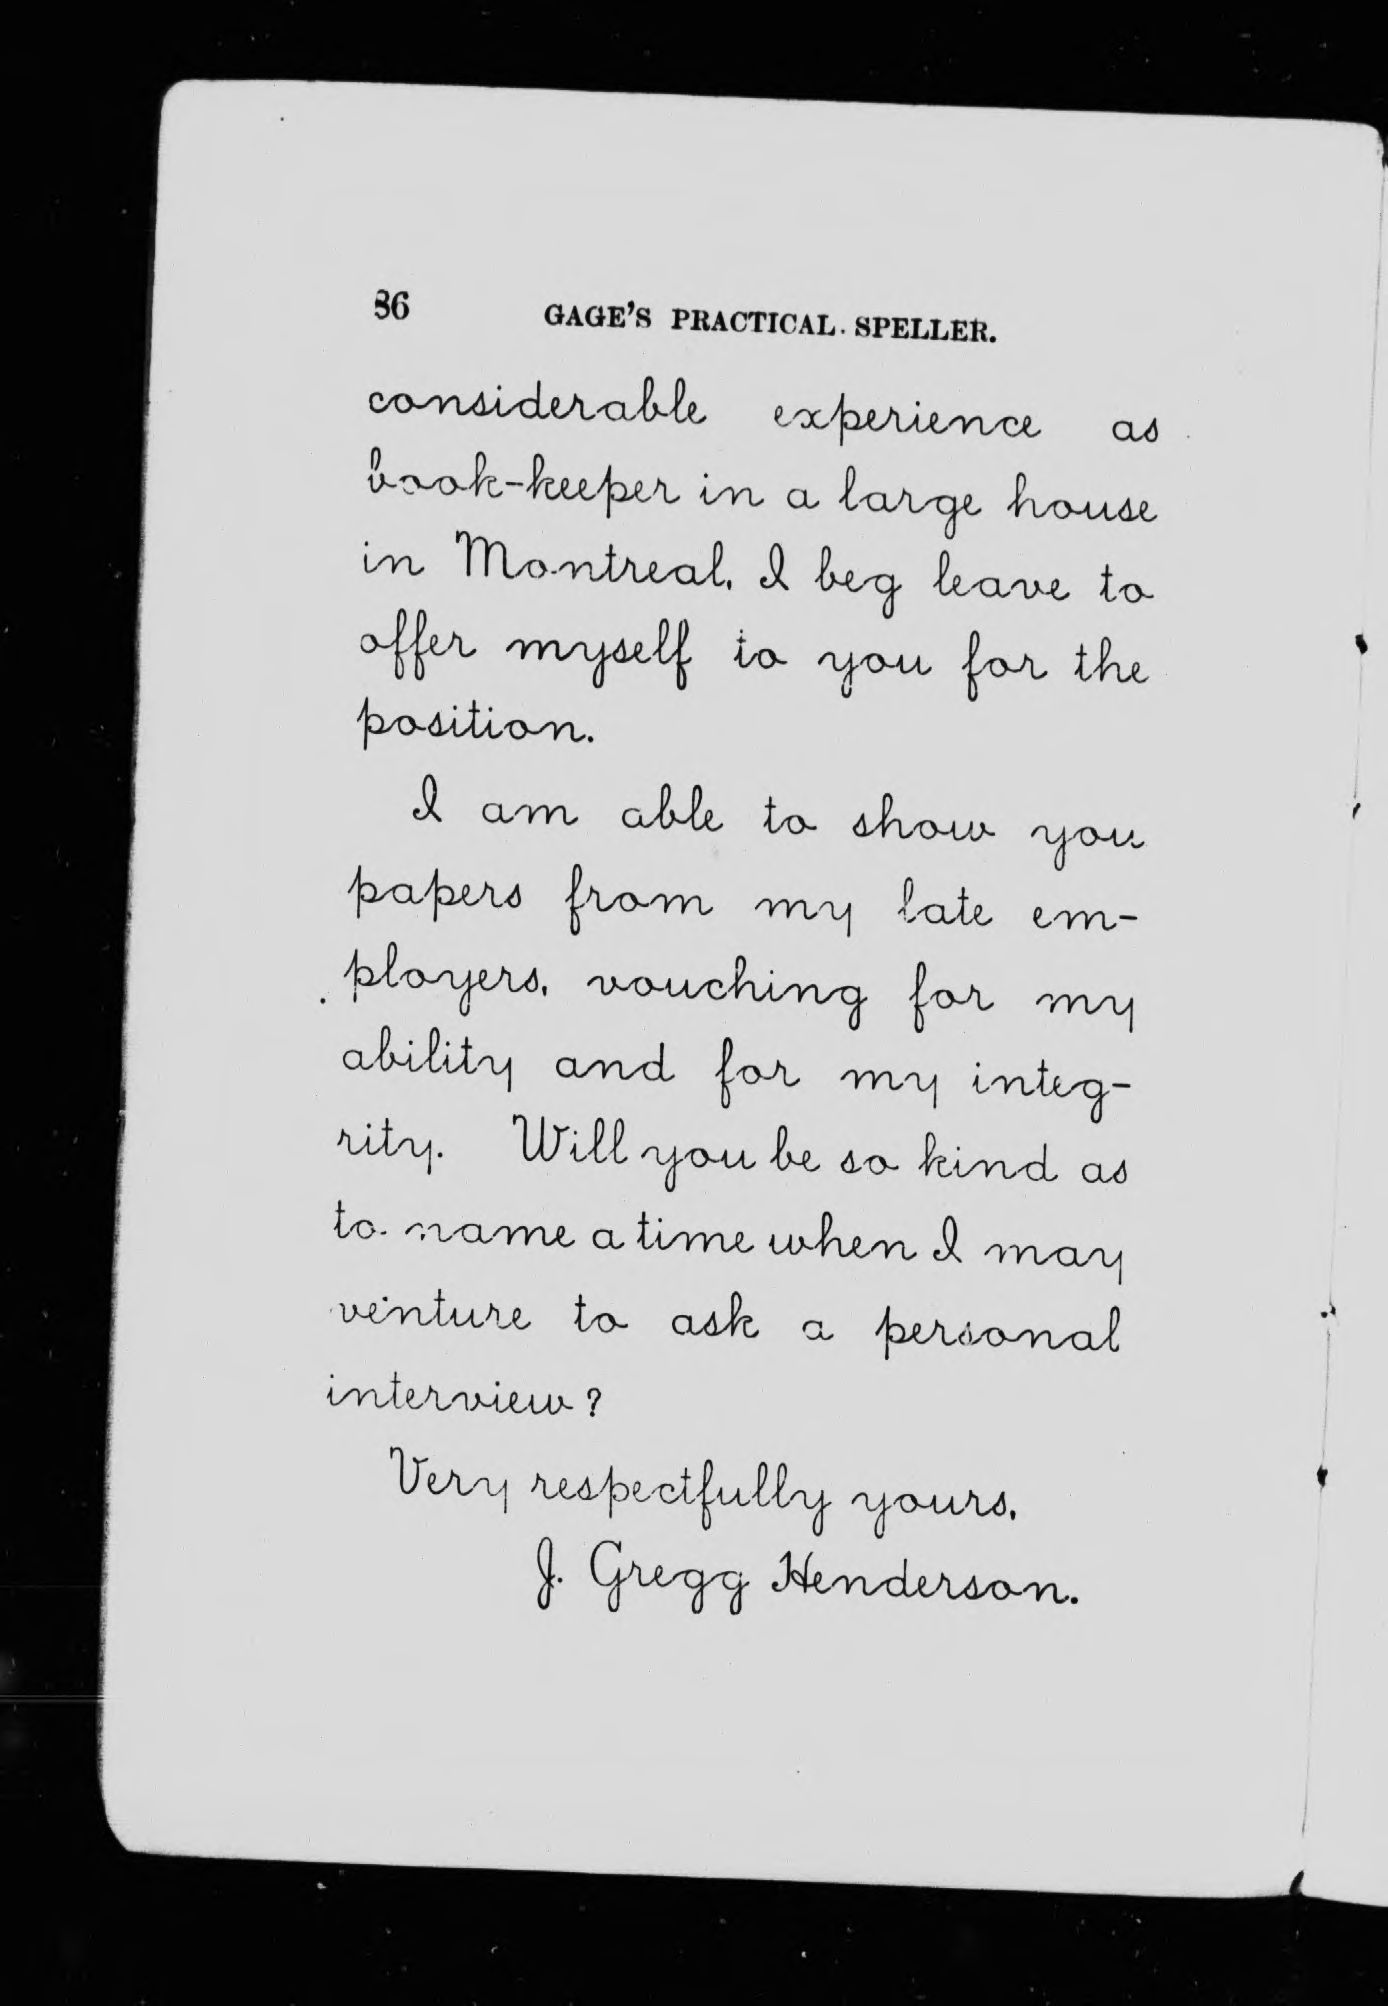 86 GAGE'S PRACTICAL SPELLER.
considerable experience as
book-keeper in a large house
in Montreal, I beg leave to
offer myself to you for the
position.
I am able to show you
papers from my late em-
ployers, vouching for my
ability and for my integ-
rity. Will you be so kind as
to name a time when I may
venture to ask a personal
interview?
Very respectfully yours,
J. Gregg Henderson.